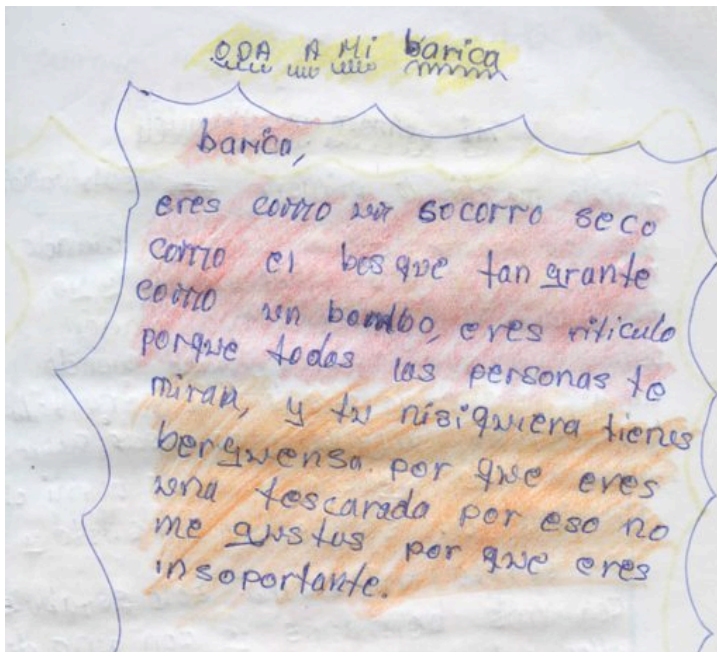 ODA A Mi barica
barica,
eres como un socorro seco
como el bosque tan grante
como un bombo, eres riticulo
porque todas las personas te
miran, y tu nisiquiera tienes
berguensa. por que eres
una tescarada por eso no
me gustas por que eres
insoportante.